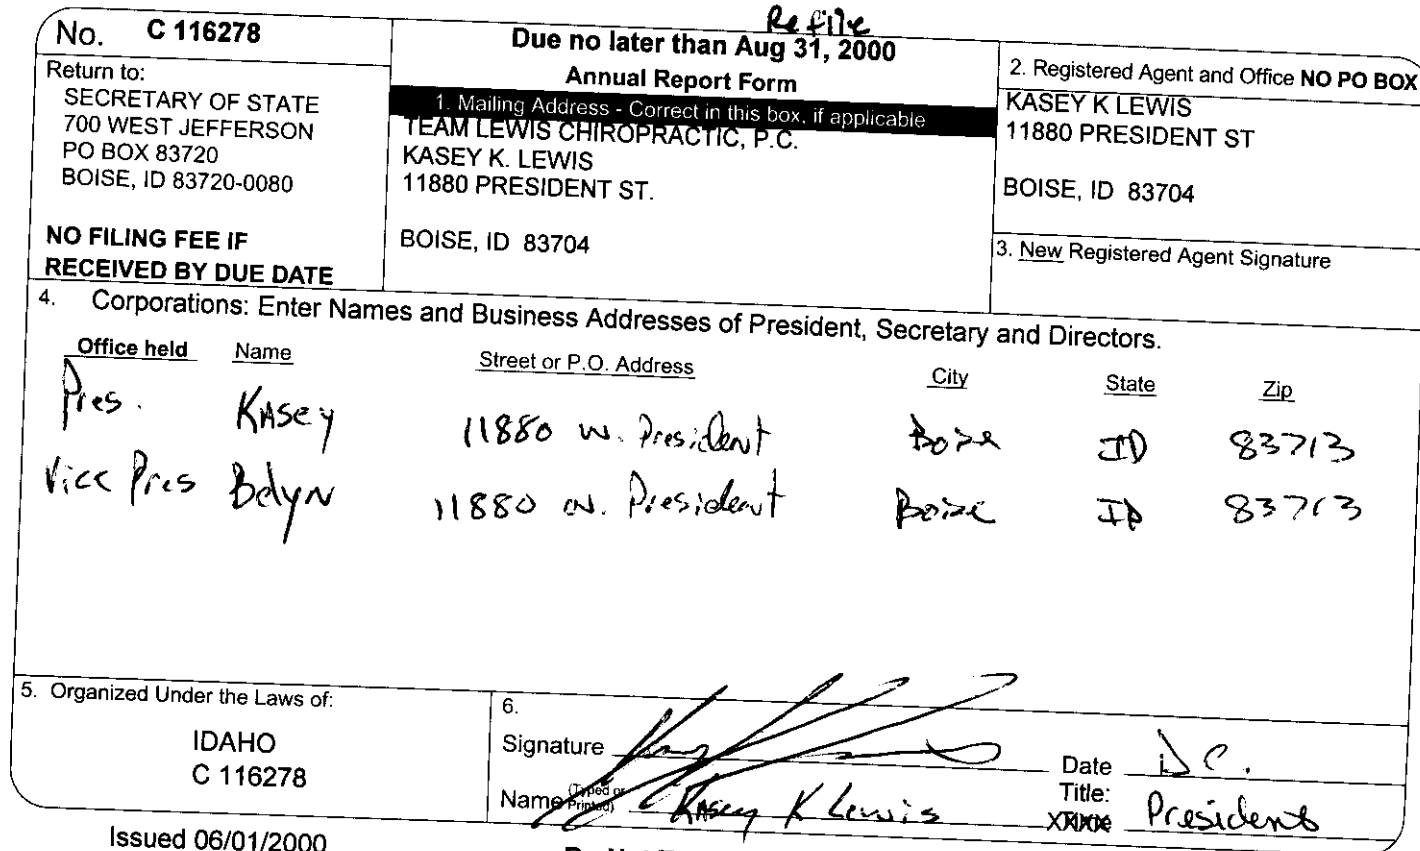 Refile
No. C 116278
Return to:
SECRETARY OF STATE
700 WEST JEFFERSON
PO BOX 83720
BOISE, ID 83720-0080
NO FILING FEE IF
RECEIVED BY DUE DATE
Due no later than Aug 31, 2000
Annual Report Form
1. Mailing Address - Correct in this box, if applicable
TEAM LEWIS CHIROPRACTIC, P.C.
KASEY K. LEWIS
11880 PRESIDENT ST.
BOISE, ID 83704
2. Registered Agent and Office NO PO BOX
KASEY K LEWIS
11880 PRESIDENT ST
BOISE, ID 83704
3. New Registered Agent Signature
4. Corporations: Enter Names and Business Addresses of President, Secretary and Directors.
Office held Name Street or P.O. Address City State Zip
Pres. Kasey 11880 W. President Boise ID 83713
Vice Pres Belyn 11880 W. President Boise ID 83713
5. Organized Under the Laws of:
IDAHO
C 116278
6.
Signature
Date D.C.
Name (Typed or Printed) Kasey K Lewis
Title: President
Issued 06/01/2000